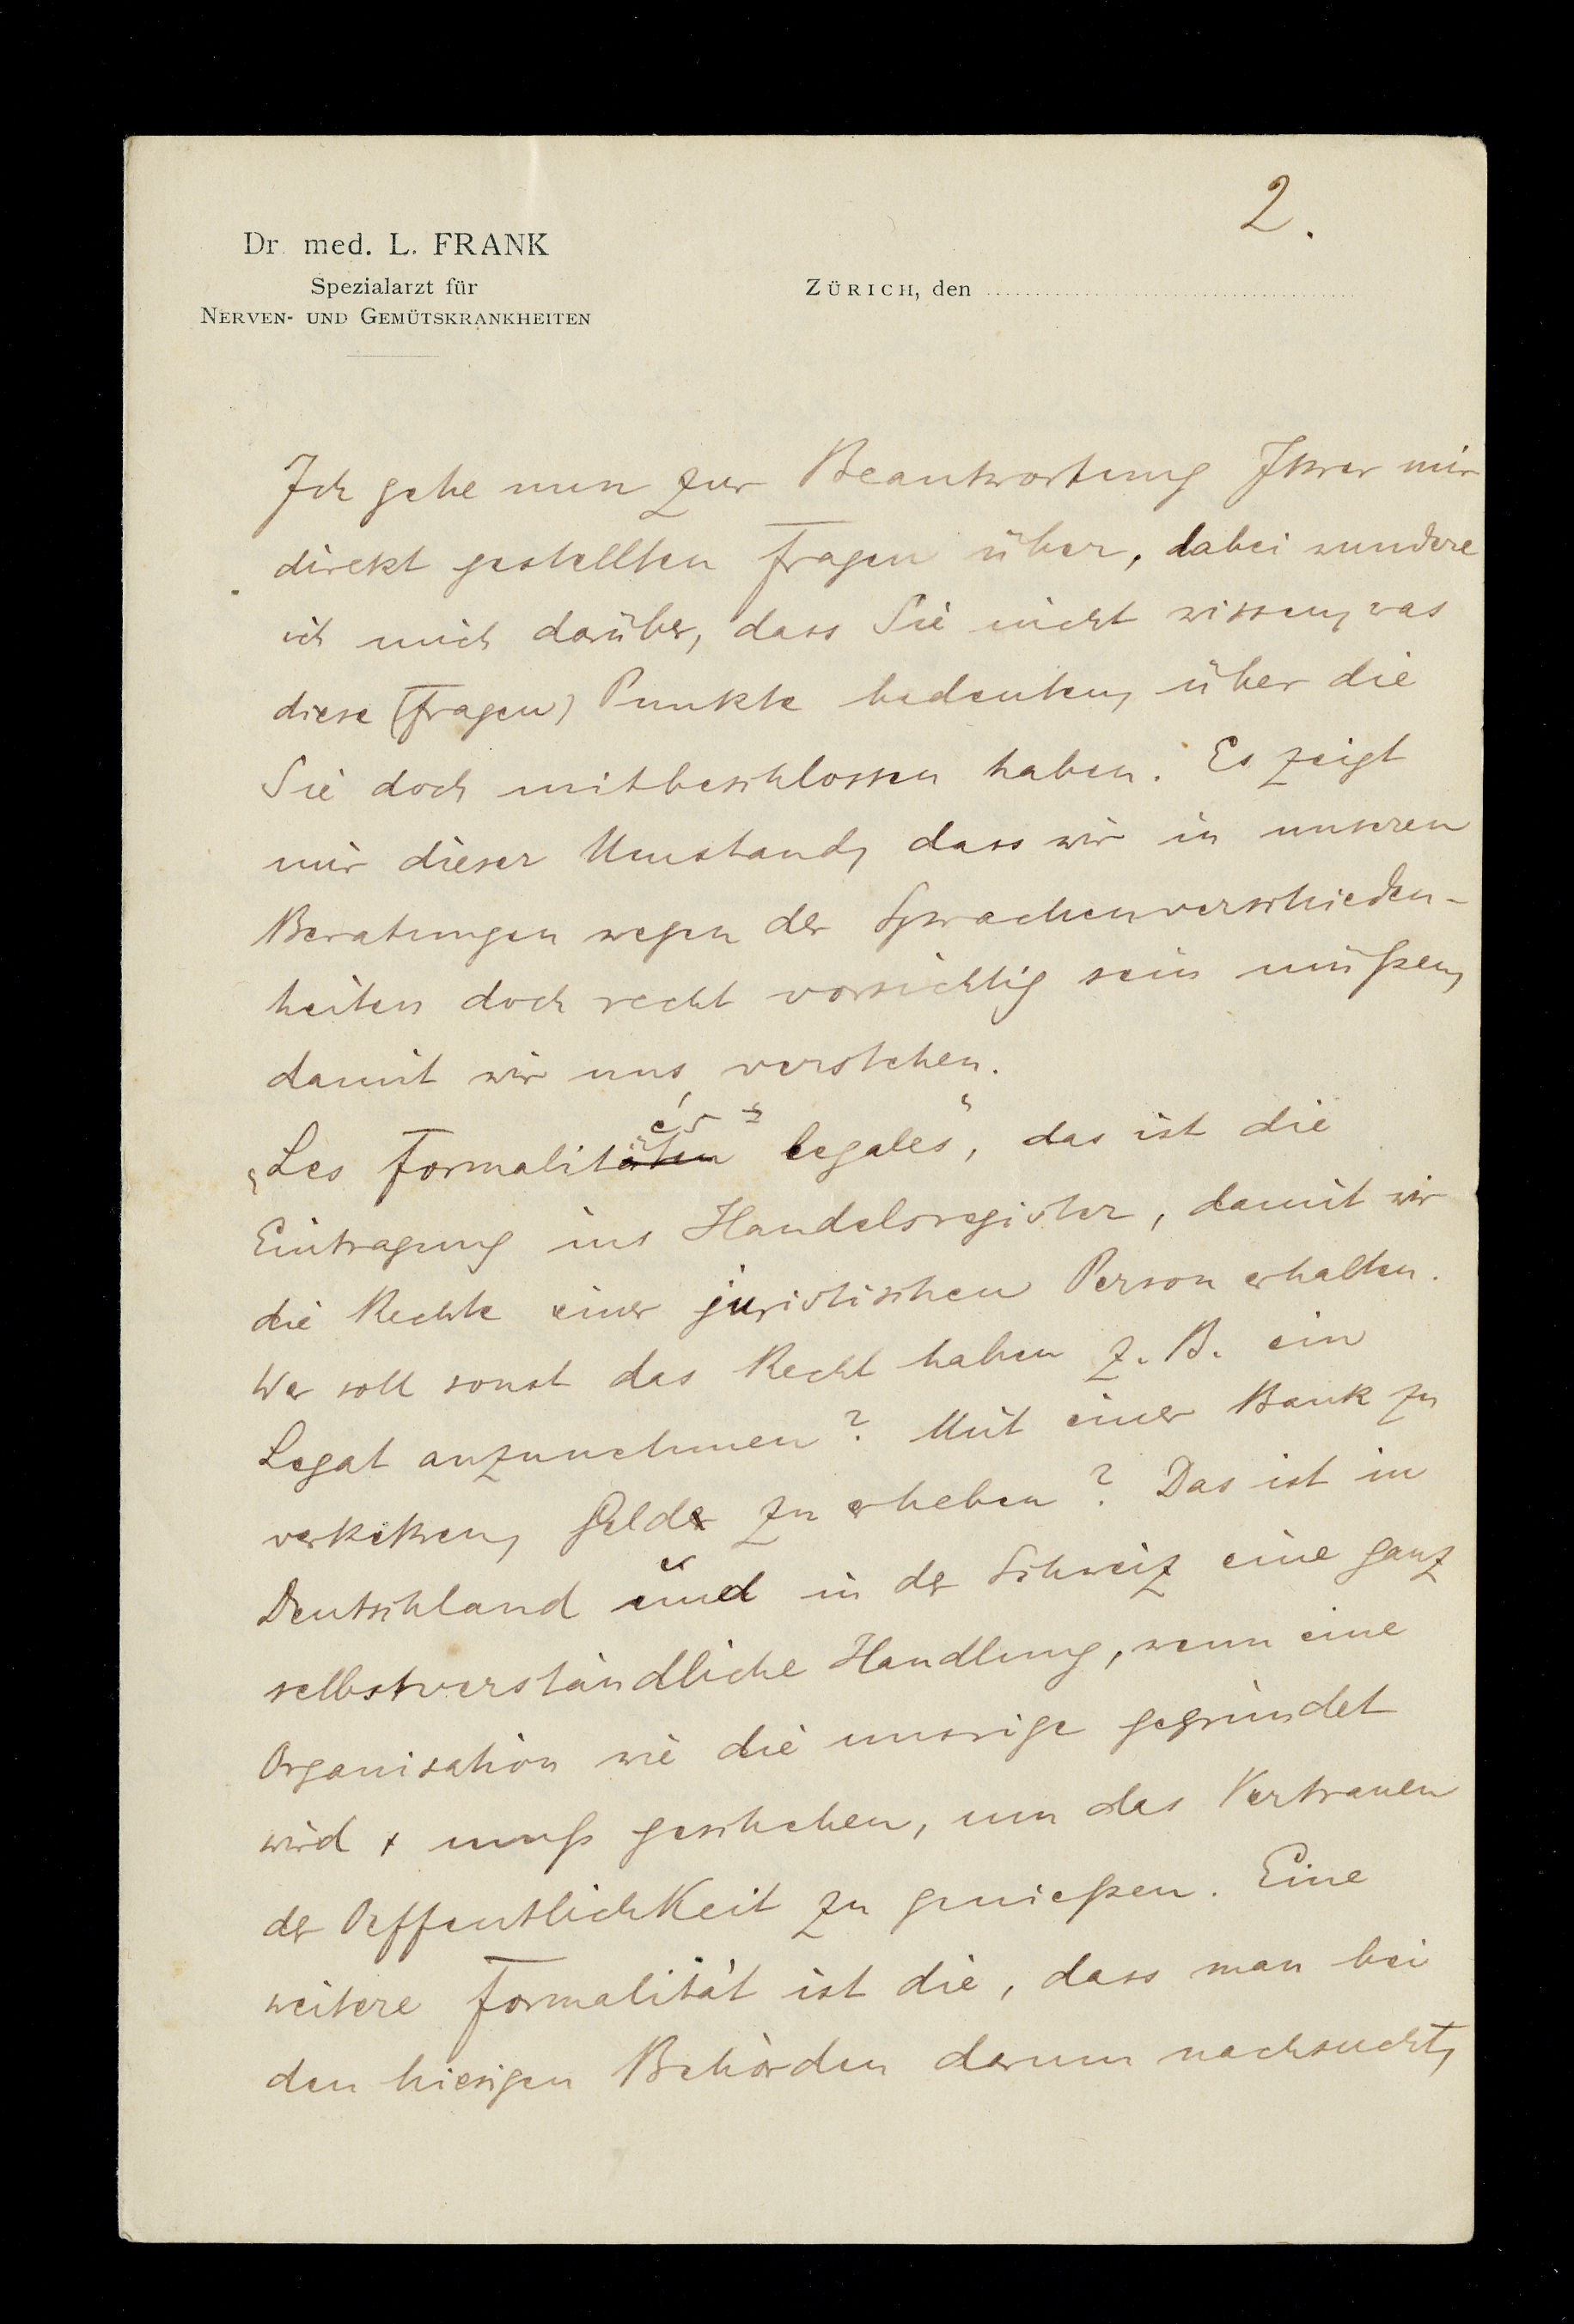 2.
Dr. med. L. FRANK
Spezialarzt für
NERVEN- UND GEMÜTSKRANKHEITEN
ZÜRICH, den
Ich gehe nun zur Beantwortung Ihrer mir
direkt gestellten Fragen über, dabei wundere
ich mich darüber, dass Sie nicht wissen, was
diese (Fragen) Punkte bedeuten, über die
Sie doch mitbeschlossen haben. Es zeigt
mir dieser Umstand, dass wir in unseren
Beratungen wegen der Sprachenverschieden-
heiten doch recht vorsichtig sein müßen,
damit wir uns verstehen.
„Les Formalités legales“, das ist die
Eintragung ins Handelsregister, damit wir
die Rechte einer juristischen Person erhalten.
Wer soll sonst das Recht haben z. B. ein
Legat anzunehmen? Mit einer Bank zu
verkehren, Gelder zu erheben? Das ist in
Deutschland und in der Schweiz eine ganz
selbstverständliche Handlung, wenn eine
Organisation wie die unsrige gegründet
wird + muß geschehen, um das Vertrauen
der Oeffentlichkeit zu genießen. Eine
weitere Formalität ist die, dass man bei
den hiesigen Behörden darum nachsucht,